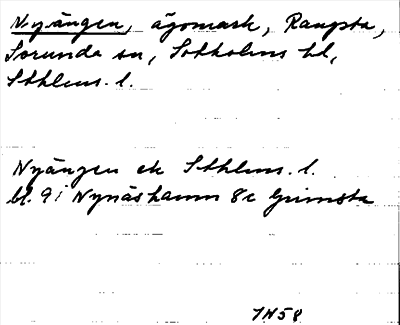 Nyängen, ägomark, Raupsta,
Sorunda sn, Sotholms hd,
Sthlms. l.
Nyängen ek Sthlms. l.
bl. 9 i Nynäshamn 8c Grimsta
1N58